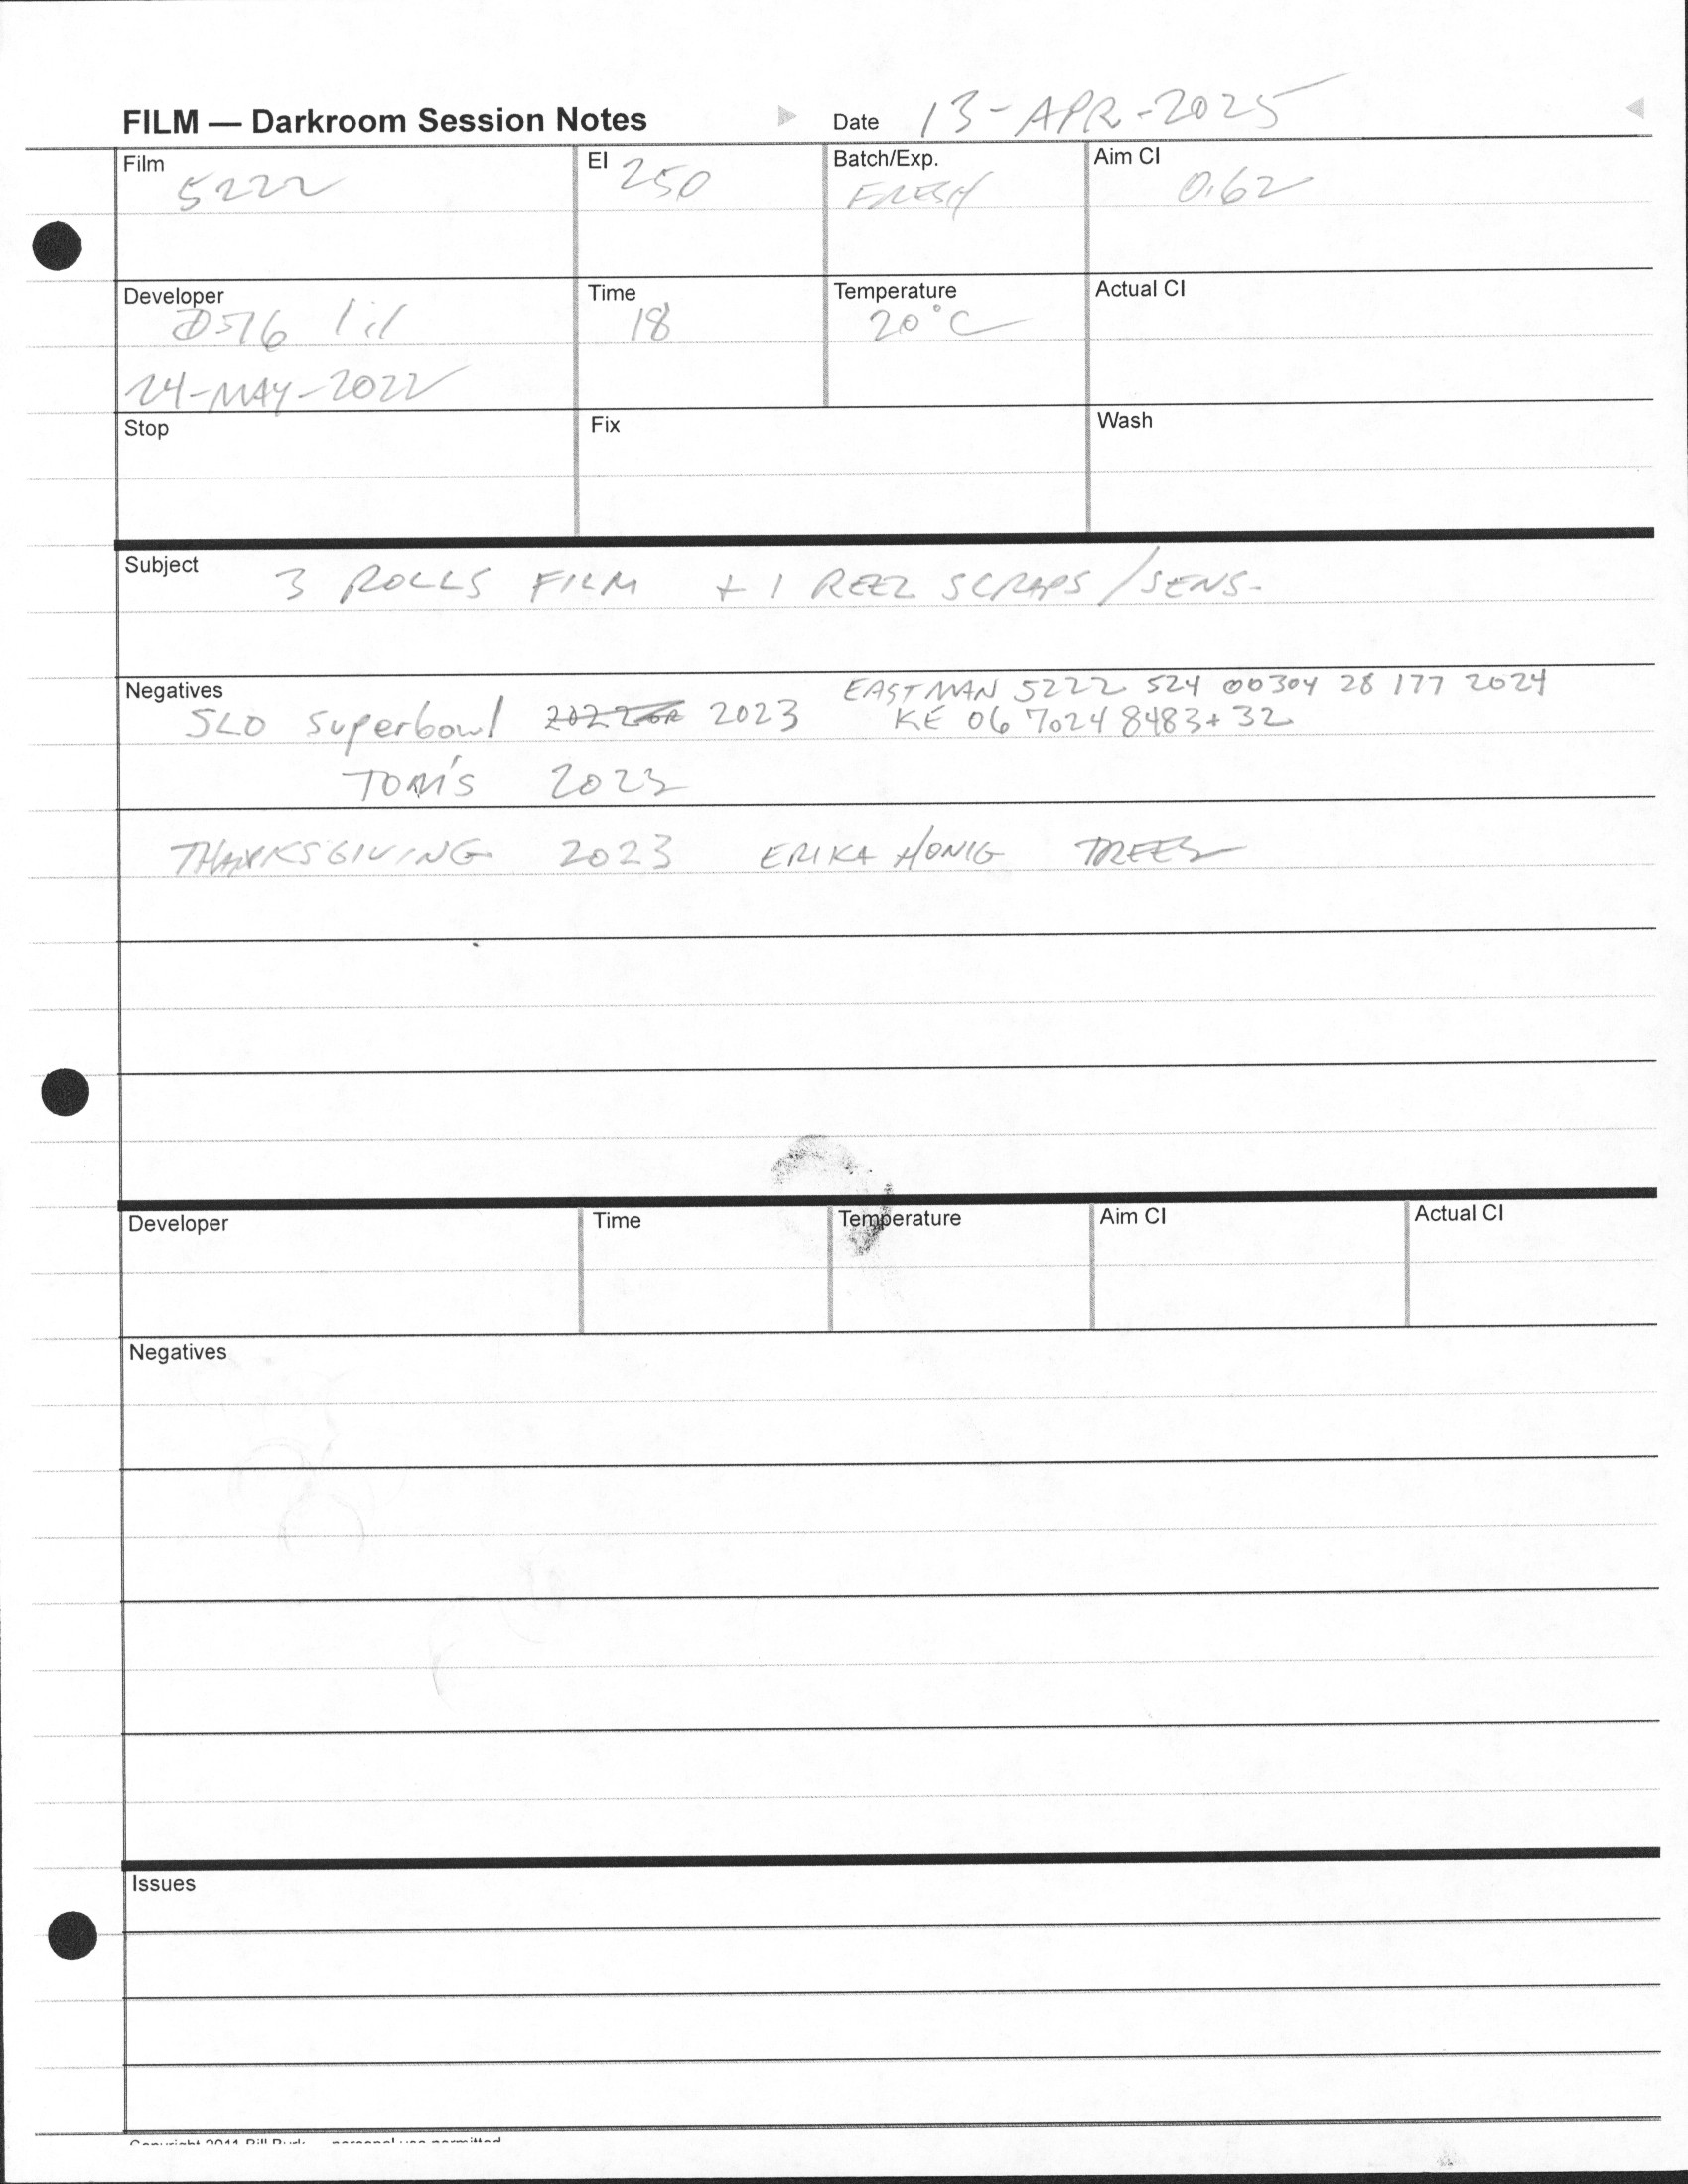 FILM — Darkroom Session Notes Date 13-APR-2025
Film EI Batch/Exp. Aim CI
5222 250 FRESH 0.62
Developer Time Temperature Actual CI
D-76 1:1 18 20°C
24-MAY-2022
Stop Fix Wash
Subject
3 ROLLS FILM + 1 REEL SCRAPS/SENS-
Negatives EASTMAN 5222 524 00304 28 177 2024
SLO Superbowl 2023 KE 06 7024 8483+32
TOM'S 2023
THANKSGIVING 2023 ERIKA HONIG TREES
Developer Time Temperature Aim CI Actual CI
Negatives
Issues
Copyright 2011 Bill Burk — personal use permitted